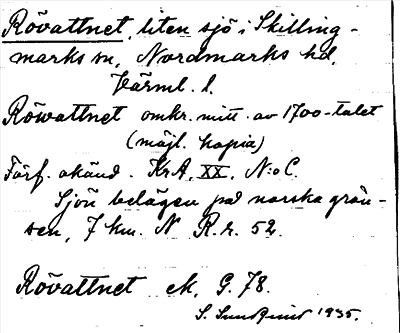 Rövattnet, liten sjö i Skilling-
marks sn, Nordmarks hd,
Värml. l.
Röwattnet omkr. mitt. av 1700-talet
(möjl. kopia)
Förf. okänd. KrA, XX, N:o C.
Sjön belägen på norska grän-
sen, 7 km. N R.r. 52.
Rövattnet ek. G. 78.
S. Sundqvist 1935.